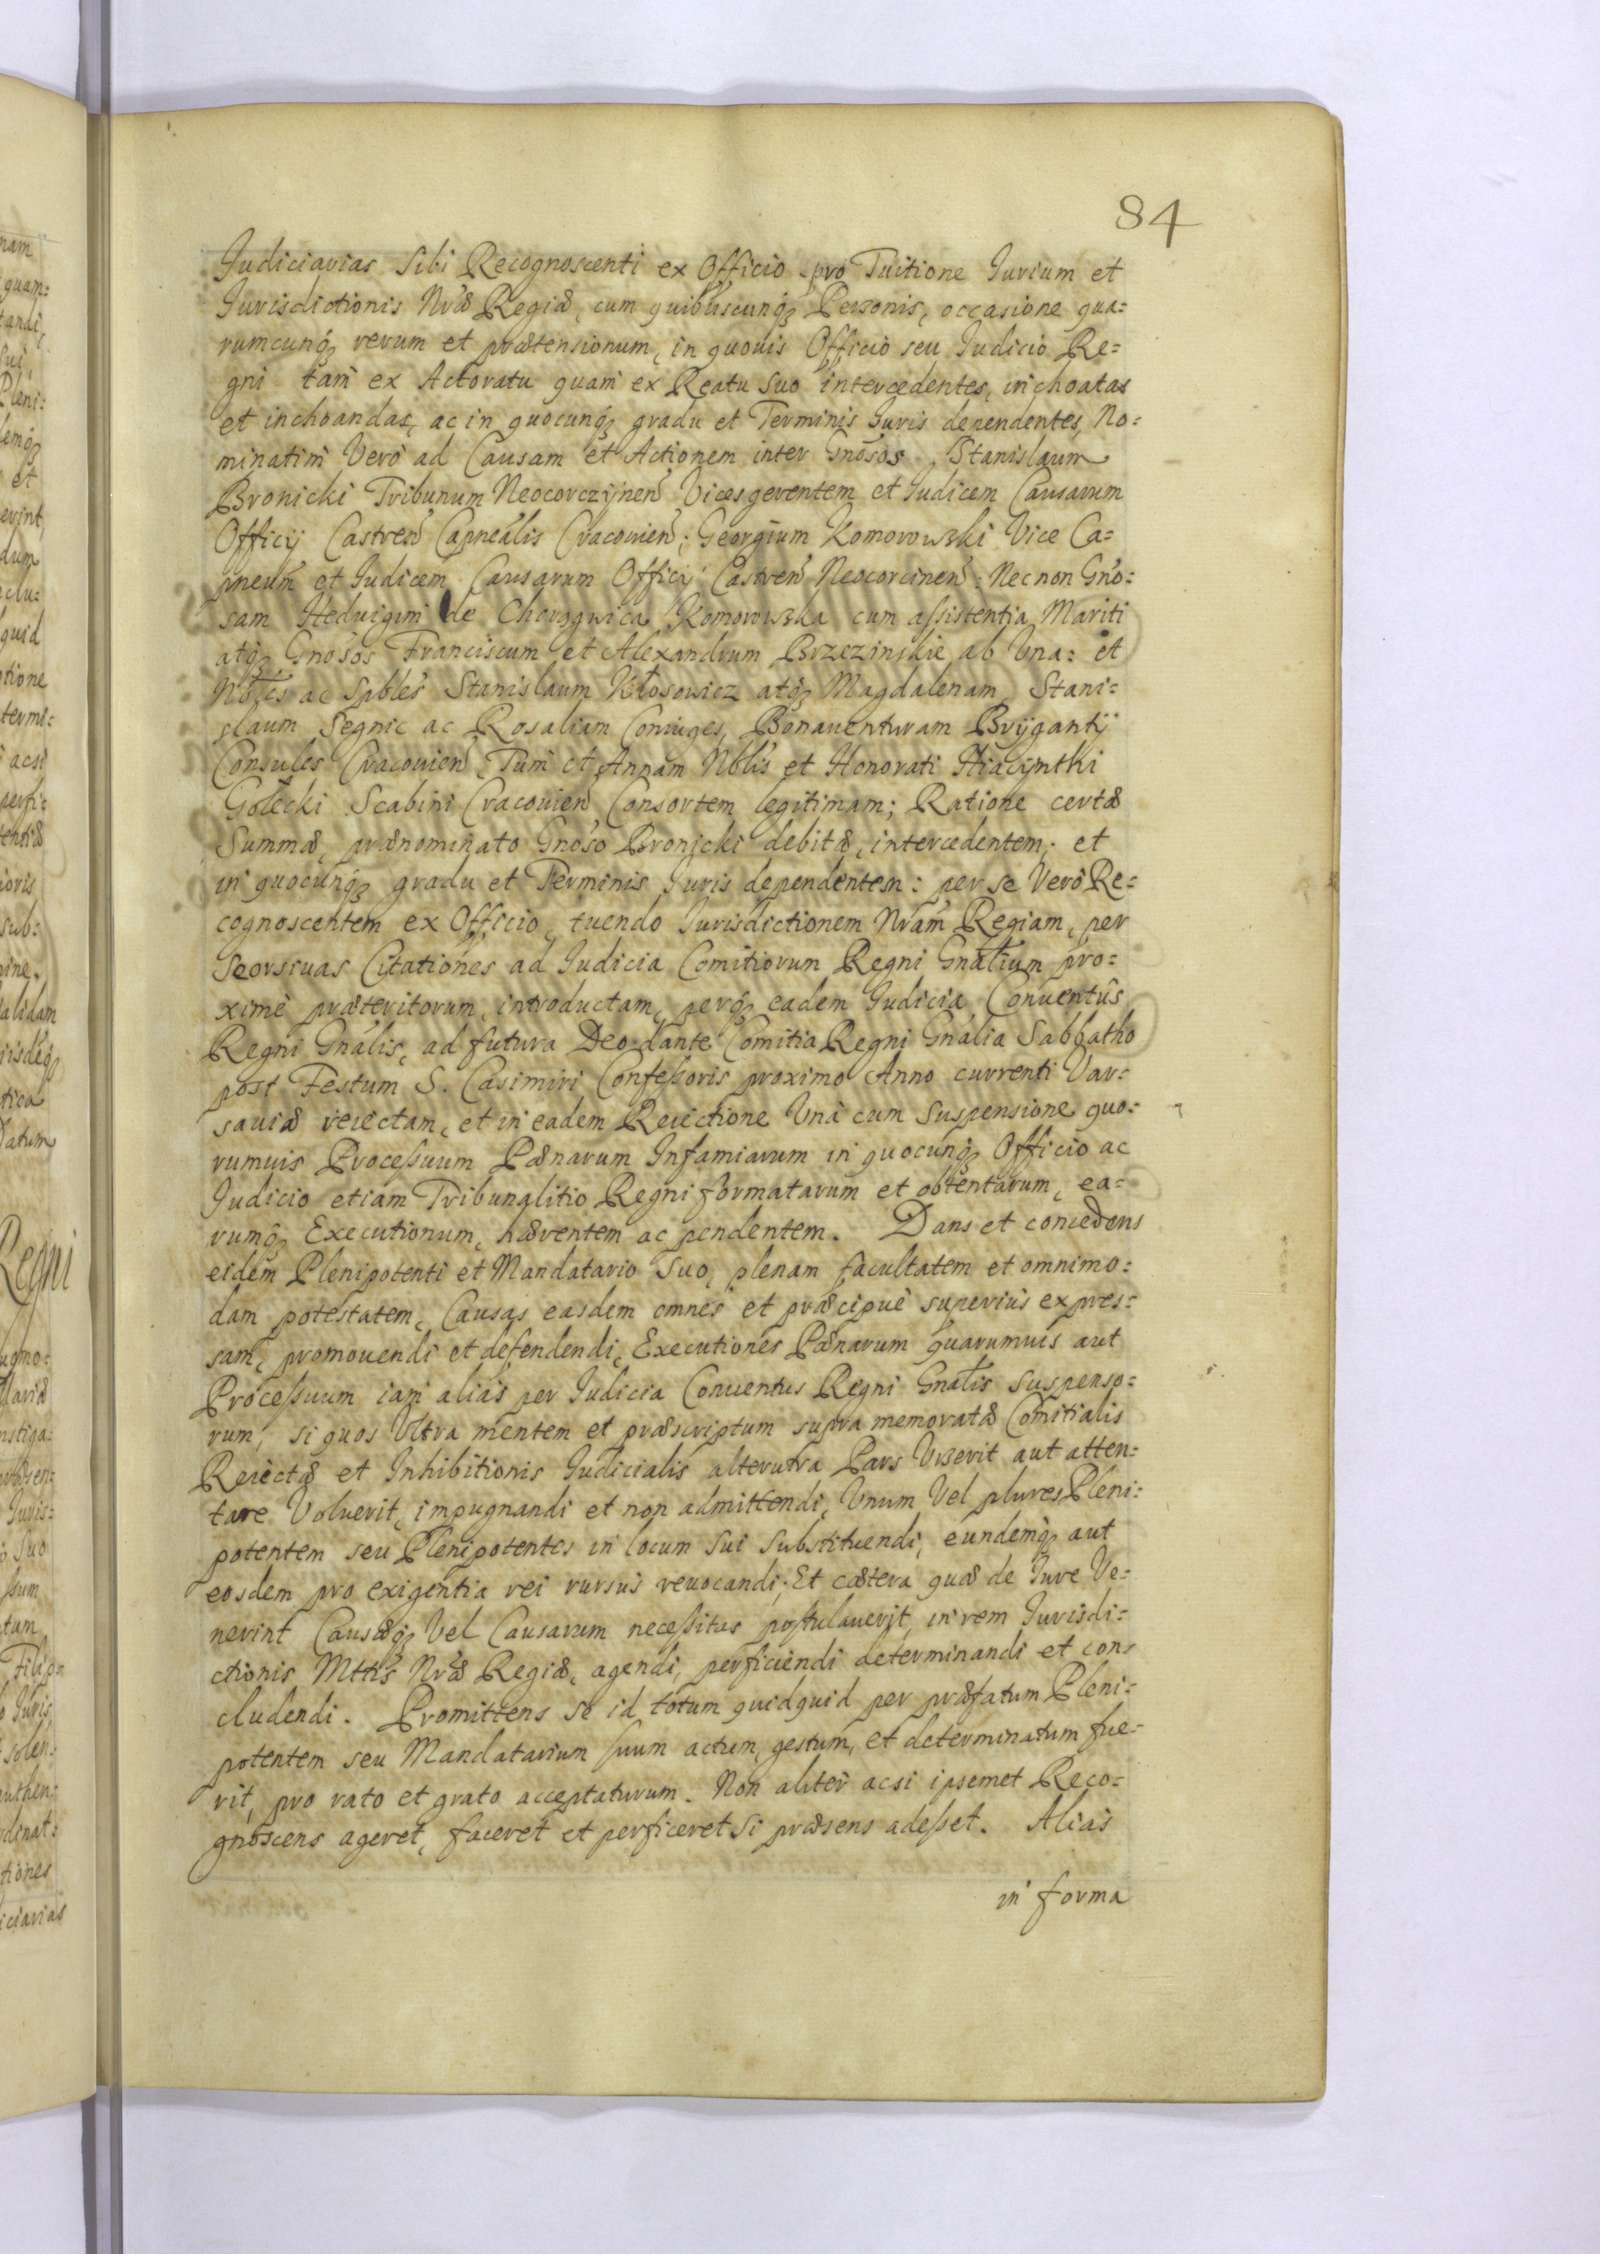 84
Judiciarias Sibi Recognoscenti ex Officio pro Tuitione Jurium et
Jurisdictionis Nræ Regiæ, cum quibuscunq; Personis, occasione qua=
rumcunq; rerum et prætensionum, in quouis Officio seu Judicio Re=
gni tam ex Actoratu quam ex Reatu suo intercedentes, inchoatas
et inchoandas, ac in quocunq; gradu et Terminis Juris dependentes, No=
minatim Vero ad Causam et Actionem inter Gnosos Stanislaum
Bronicki Tribunum Neocorczynen Vicesgerentem et Judicem Causarum
Officij Castren Capnealis Cracouien; Georgium Komorowski Vice Ca=
pneum et Judicem Causarum Officij Castren Neocorcinen: Nec non Gno=
sam Heduigim de Komorowska cum assistentia Mariti
atq; Gnosos Franciscum et Alexandrum Brzezinskie ab Vna: et
Nobles ac Spbles Stanislaum Kłosowicz atq; Magdalenam, Stani=
slaum Segnic ac Rosaliam Coniuges, Bonauenturam Bryganty
Consules Cracouien, Tum et Annam Nblis et Honorati Hiacynthi
Golecki Scabini Cracouien Consortem legitimam; Ratione certæ
Summæ, prænominato Gnoso Bronicki debitæ, intercedentem, et
in quocunq; gradu et Terminis Juris dependentem: per se Vero Re=
cognoscentem ex Officio, tuendo Jurisdictionem Nram Regiam, per
Seorsiuas Citationes ad Judicia Comitiorum Regni Gnalium pro=
xime præteritorum, introductam, perq; eadem Judicia Conuentus
Regni Gnalis, ad futura Deo dante Comitia Regni Gnalia Sabbatho
post Festum S. Casimiri Confessoris proximo Anno currenti Var=
sauiæ reiectam, et in eadem Reiectione Vna cum Suspensione quo=
rumuis Processuum Pænarum Infamiarum in quocunq; Officio ac
Judicio etiam Tribunalitio Regni formatarum et obtentarum, ea=
rumq; Executionum, hærentem ac pendentem. Dans et concedens
eidem Plenipotenti et Mandatario Suo, plenam facultatem et omnimo=
dam potestatem, Causas easdem omnes et præcipue superius expres=
sam, promouendi et defendendi, Executiones Pænarum quarumuis aut
Processuum iam alias per Judicia Conuentus Regni Gnalis suspenso=
rum, si quos Vltra mentem et præscriptum supra memoratæ Comitialis
Reiectæ et Inhibitionis Judicialis alterutra Pars Vrserit aut atten=
tare Voluerit, impugnandi et non admittendi, Vnum Vel plures Pleni=
potentem seu Plenipotentes in locum Sui Substituendi, eundemq; aut
eosdem pro exigentia rei rursus reuocandi; Et cætera quæ de Jure Ve=
nerint Causæq; Vel Causarum necessitas postulauerit, in rem Jurisdi=
ctionis Mttis Nræ Regiæ, agendi, perficiendi determinandi et con=
cludendi. Promittens se id totum quidquid per præfatum Pleni=
potentem seu Mandatarium suum actum, gestum, et determinatum fue=
rit, pro rato et grato acceptaturum. Non aliter acsi ipsemet Reco=
gnoscens ageret, faceret et perficeret Si præsens adesset. Alias
in forma